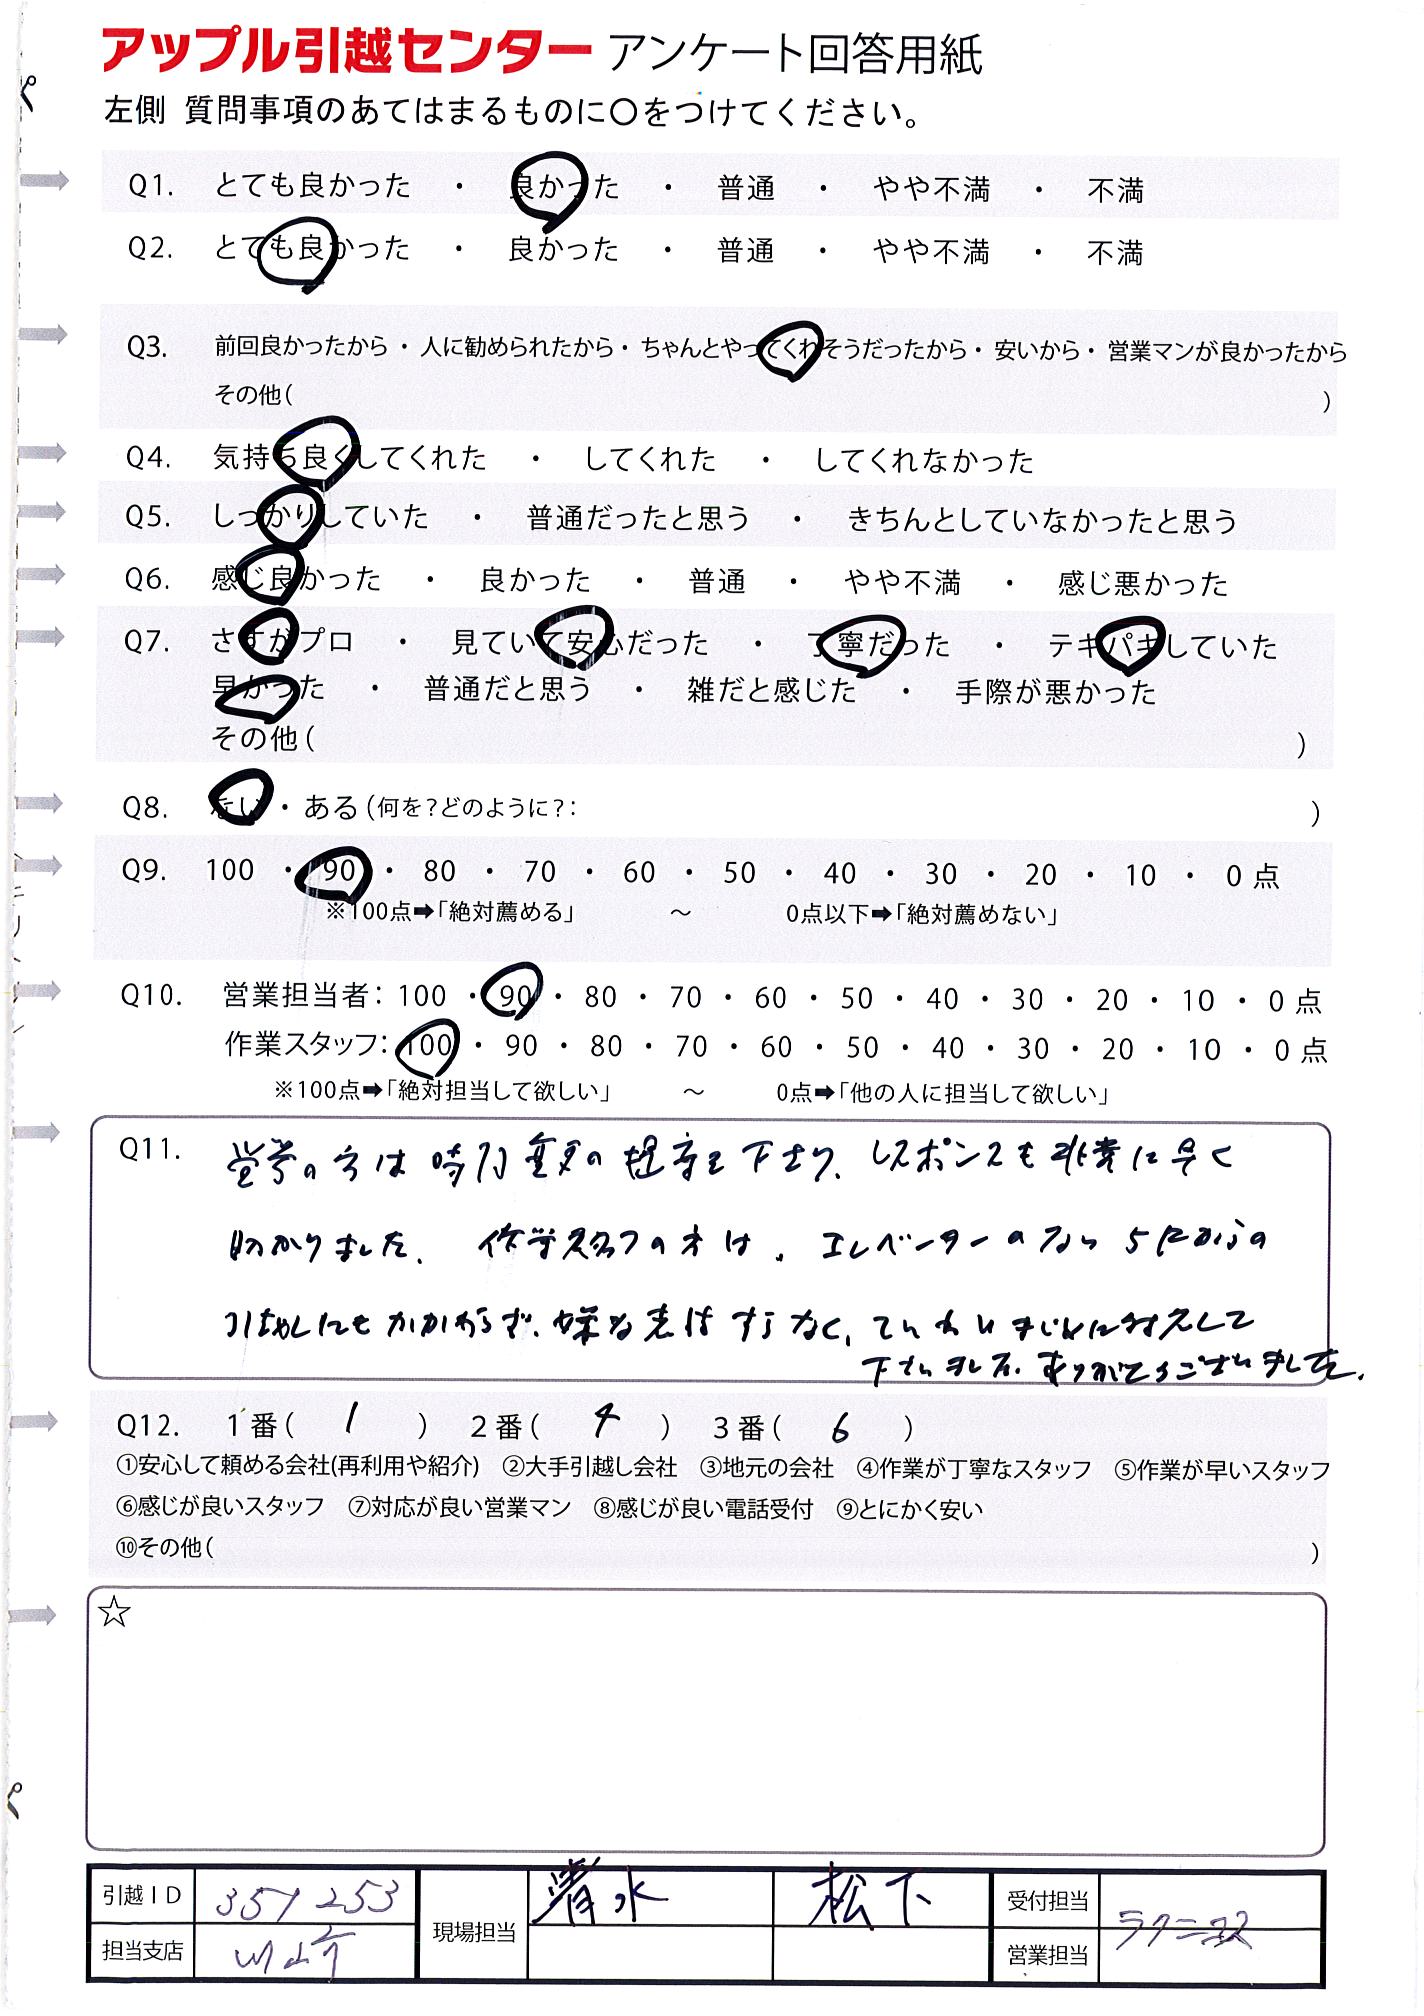 アップル引越センター アンケート回答用紙
左側 質問事項のあてはまるものに〇をつけてください。
Q1. とても良かった ・ 良かった ・ 普通 ・ やや不満 ・ 不満
Q2. とても良かった ・ 良かった ・ 普通 ・ やや不満 ・ 不満
Q3. 前回良かったから ・ 人に勧められたから ・ ちゃんとやってくれそうだったから ・ 安いから ・ 営業マンが良かったから
その他( )
Q4. 気持ち良くしてくれた ・ してくれた ・ してくれなかった
Q5. しっかりしていた ・ 普通だったと思う ・ きちんとしていなかったと思う
Q6. 感じ良かった ・ 良かった ・ 普通 ・ やや不満 ・ 感じ悪かった
Q7. さすがプロ ・ 見ていて安心だった ・ 丁寧だった ・ テキパキしていた
早かった ・ 普通だと思う ・ 雑だと感じた ・ 手際が悪かった
その他( )
Q8. ない ・ ある(何を?どのように?: )
Q9. 100 ・ 90 ・ 80 ・ 70 ・ 60 ・ 50 ・ 40 ・ 30 ・ 20 ・ 10 ・ 0 点
※100点➡「絶対薦める」 ～ 0点以下➡「絶対薦めない」
Q10. 営業担当者: 100 ・ 90 ・ 80 ・ 70 ・ 60 ・ 50 ・ 40 ・ 30 ・ 20 ・ 10 ・ 0 点
作業スタッフ: 100 ・ 90 ・ 80 ・ 70 ・ 60 ・ 50 ・ 40 ・ 30 ・ 20 ・ 10 ・ 0 点
※100点➡「絶対担当して欲しい」 ～ 0点➡「他の人に担当して欲しい」
Q11. 営業の方は時間変更の提案を下さり、レスポンスも非常に早く
助かりました。 作業スタッフの方は、エレベーターのない5Fからの
引越しにもかかわらず、嫌な表情すらなく、ていねいに対応して
下さいました。ありがとうございました。
Q12. 1番( 1 ) 2番( 4 ) 3番( 6 )
①安心して頼める会社(再利用や紹介) ②大手引越し会社 ③地元の会社 ④作業が丁寧なスタッフ ⑤作業が早いスタッフ
⑥感じが良いスタッフ ⑦対応が良い営業マン ⑧感じが良い電話受付 ⑨とにかく安い
⑩その他( )
☆
引越ID 351253 現場担当 清水 松下 受付担当
担当支店 川崎 営業担当